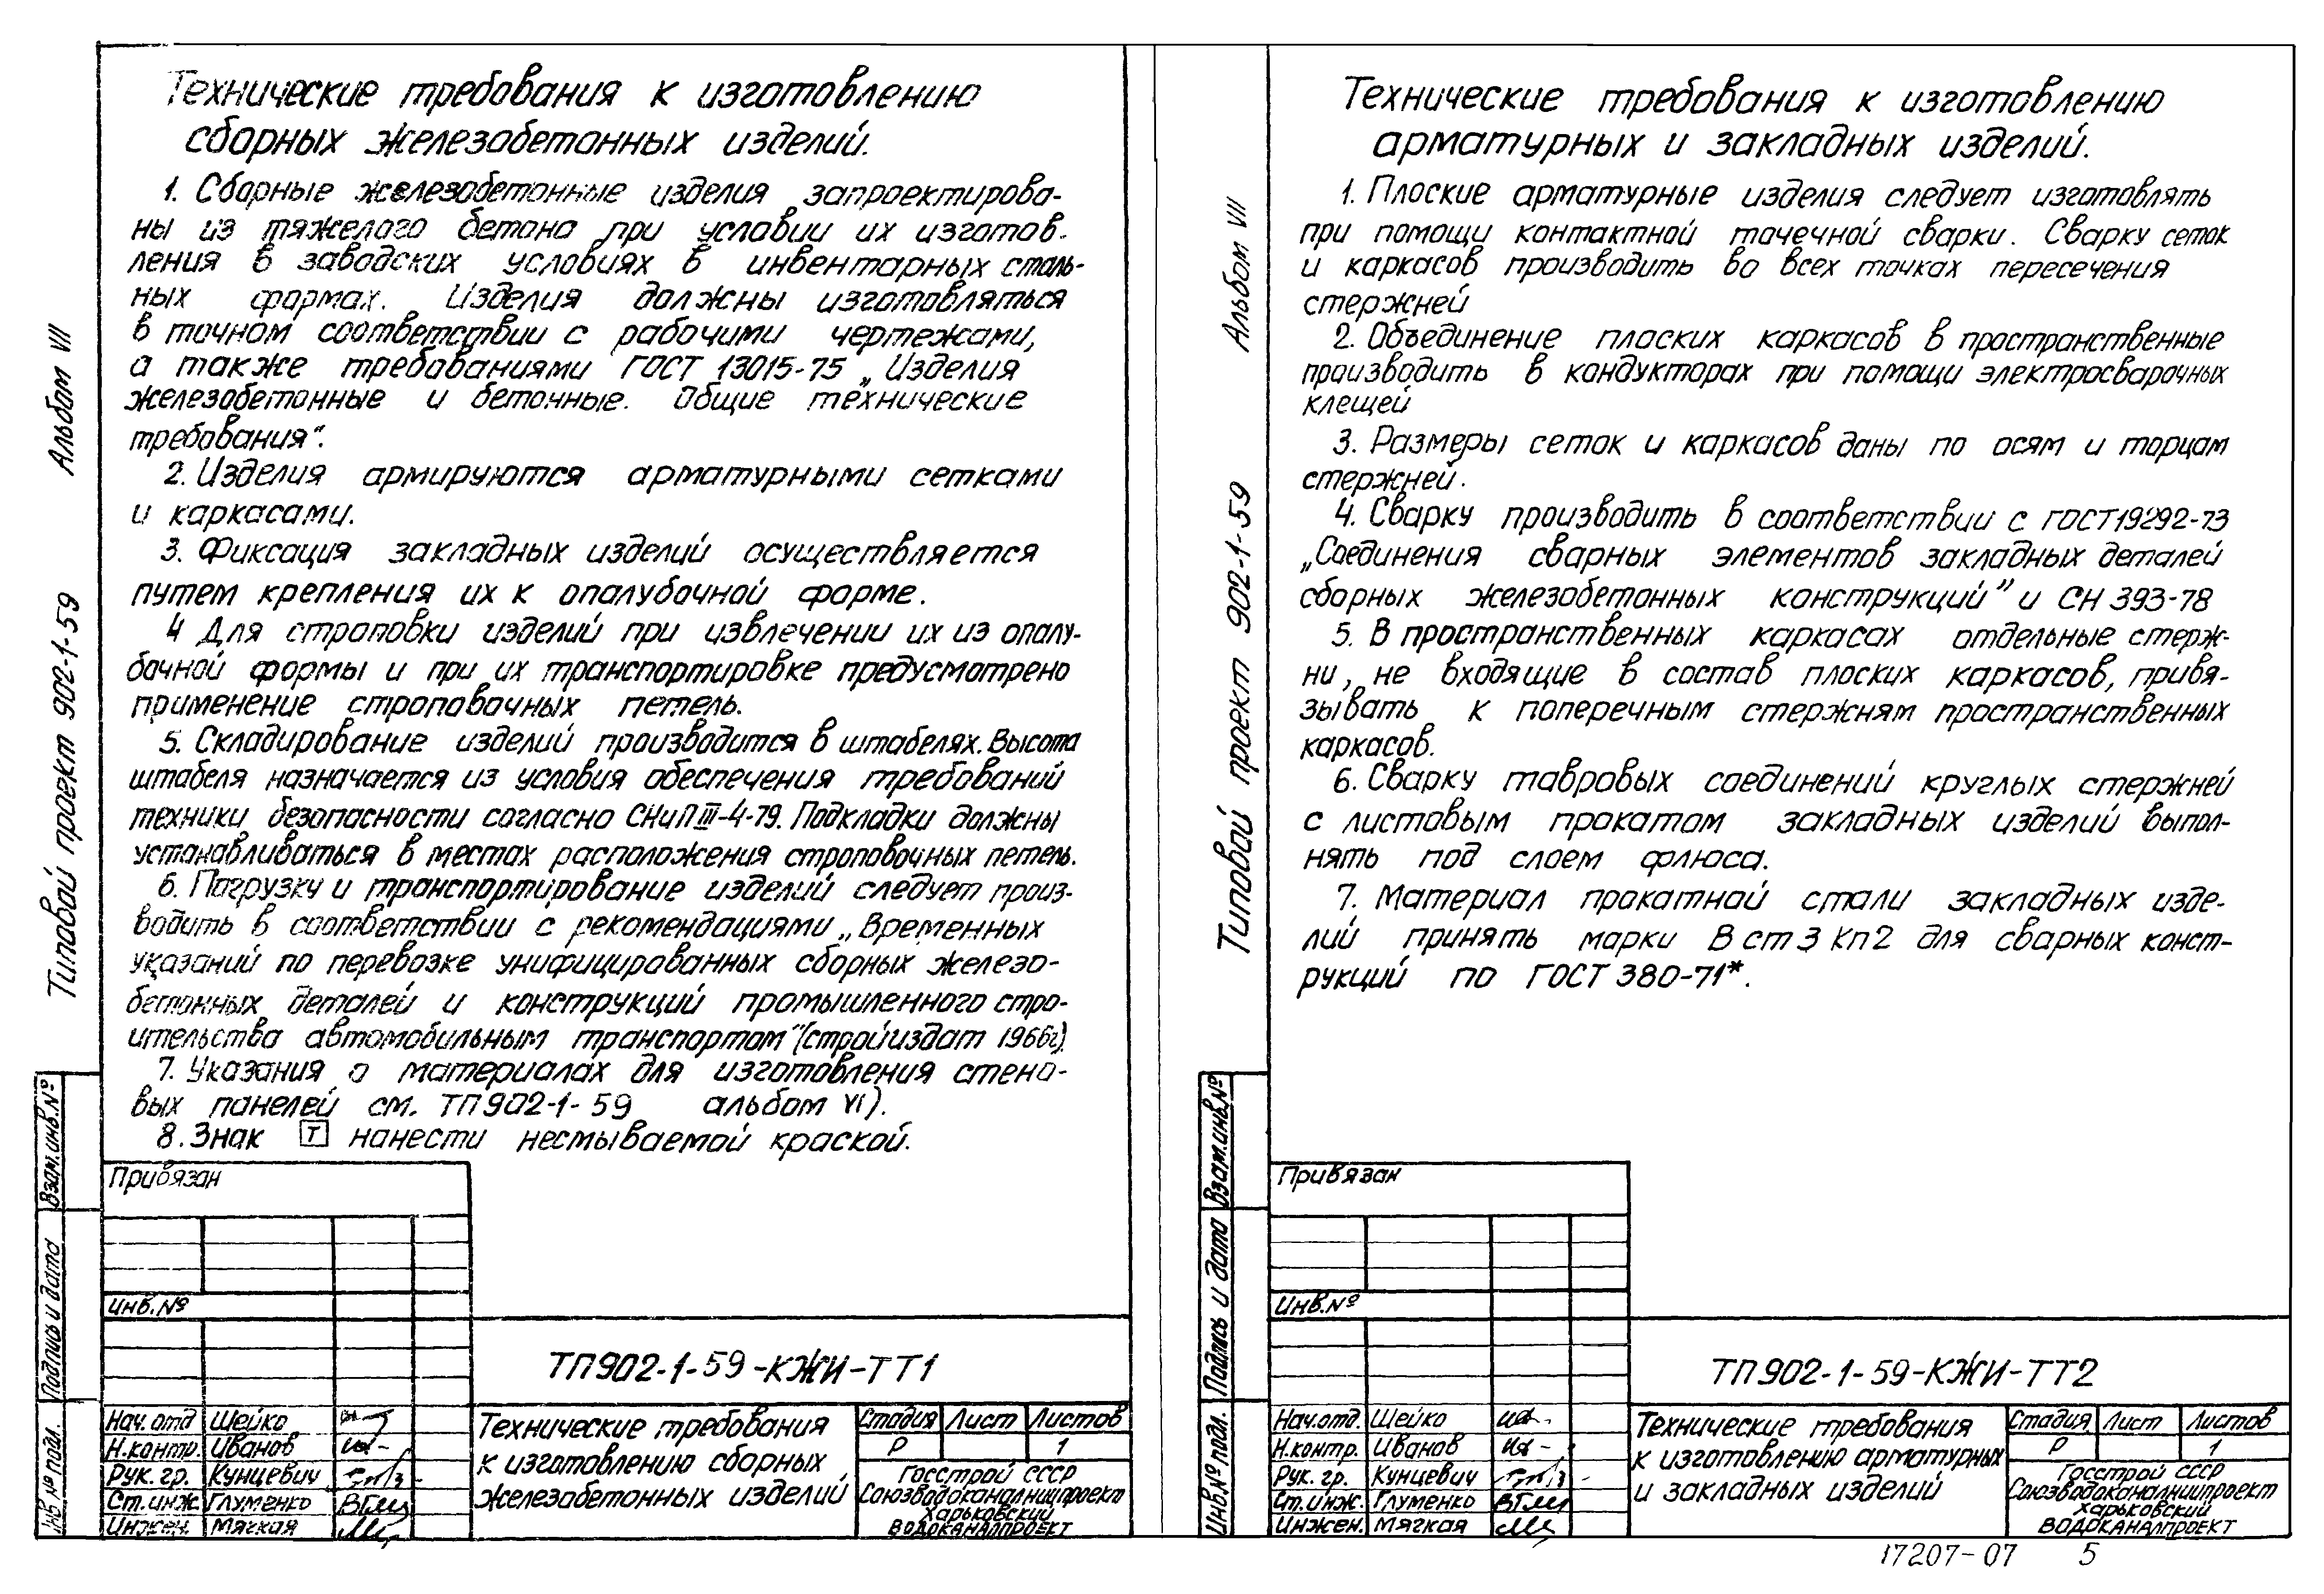 Технические требования к изготовлению
сборных железобетонных изделий.
1. Сборные железобетонные изделия запроектирова-
ны из тяжелого бетона при условии их изготов-
ления в заводских условиях в инвентарных сталь-
ных формах. Изделия должны изготовляться
в точном соответствии с рабочими чертежами,
а также требованиями ГОСТ 13015-75 „Изделия
железобетонные и бетонные. Общие технические
требования“.
2. Изделия армируются арматурными сетками
и каркасами.
3. Фиксация закладных изделий осуществляется
путем крепления их к опалубочной форме.
4 Для строповки изделий при извлечении их из опалу-
бочной формы и при их транспортировке предусмотрено
применение строповочных петель.
5. Складирование изделий производится в штабелях. Высота
штабеля назначается из условия обеспечения требований
техники безопасности согласно СНиП III-4-79. Подкладки должны
устанавливаться в местах расположения строповочных петель.
6. Погрузку и транспортирование изделий следует произ-
водить в соответствии с рекомендациями „Временных
указаний по перевозке унифицированных сборных железо-
бетонных деталей и конструкций промышленного стро-
ительства автомобильным транспортом“ (стройиздат 1966г).
7. Указания о материалах для изготовления стено-
вых панелей см. ТП902-1-59 альбом VI).
8. Знак Т нанести несмываемой краской.
Альбом VII
Типовой проект 902-1-59
Взам.инв.№
Подпись и дата
Инв.№ подл.
Привязан
Инв.№
ТП902-1-59-КЖИ-ТТ1
Нач.отд Шейко
Н.контр. Иванов
Рук. гр. Кунцевич
Ст.инж. Глуменко
Инжен. Мягкая
Технические требования
к изготовлению сборных
железобетонных изделий
Стадия Лист Листов
Р 1
Госстрой СССР
Союзводоканалниипроект
Харьковский
ВОДОКАНАЛПРОЕКТ
Технические требования к изготовлению
арматурных и закладных изделий.
1. Плоские арматурные изделия следует изготовлять
при помощи контактной точечной сварки. Сварку сеток
и каркасов производить во всех точках пересечения
стержней
2. Объединение плоских каркасов в пространственные
производить в кондукторах при помощи электросварочных
клещей
3. Размеры сеток и каркасов даны по осям и торцам
стержней.
4. Сварку производить в соответствии с ГОСТ19292-73
„Соединения сварных элементов закладных деталей
сборных железобетонных конструкций” и СН 393-78
5. В пространственных каркасах отдельные стерж-
ни, не входящие в состав плоских каркасов, привя-
зывать к поперечным стержням пространственных
каркасов.
6. Сварку тавровых соединений круглых стержней
с листовым прокатом закладных изделий выпол-
нять под слоем флюса.
7. Материал прокатной стали закладных изде-
лий принять марки В ст 3 Кп2 для сварных конст-
рукций по ГОСТ 380-71*.
Альбом VII
Типовой проект 902-1-59
Взам.инв.№
Подпись и дата
Инв.№ подл.
Привязан
Инв.№
ТП902-1-59-КЖИ-ТТ2
Нач.отд. Шейко
Н.контр. Иванов
Рук. гр. Кунцевич
Ст.инж. Глуменко
Инжен. Мягкая
Технические требования
к изготовлению арматурных
и закладных изделий
Стадия Лист Листов
Р 1
Госстрой СССР
Союзводоканалниипроект
Харьковский
ВОДОКАНАЛПРОЕКТ
17207-07 5